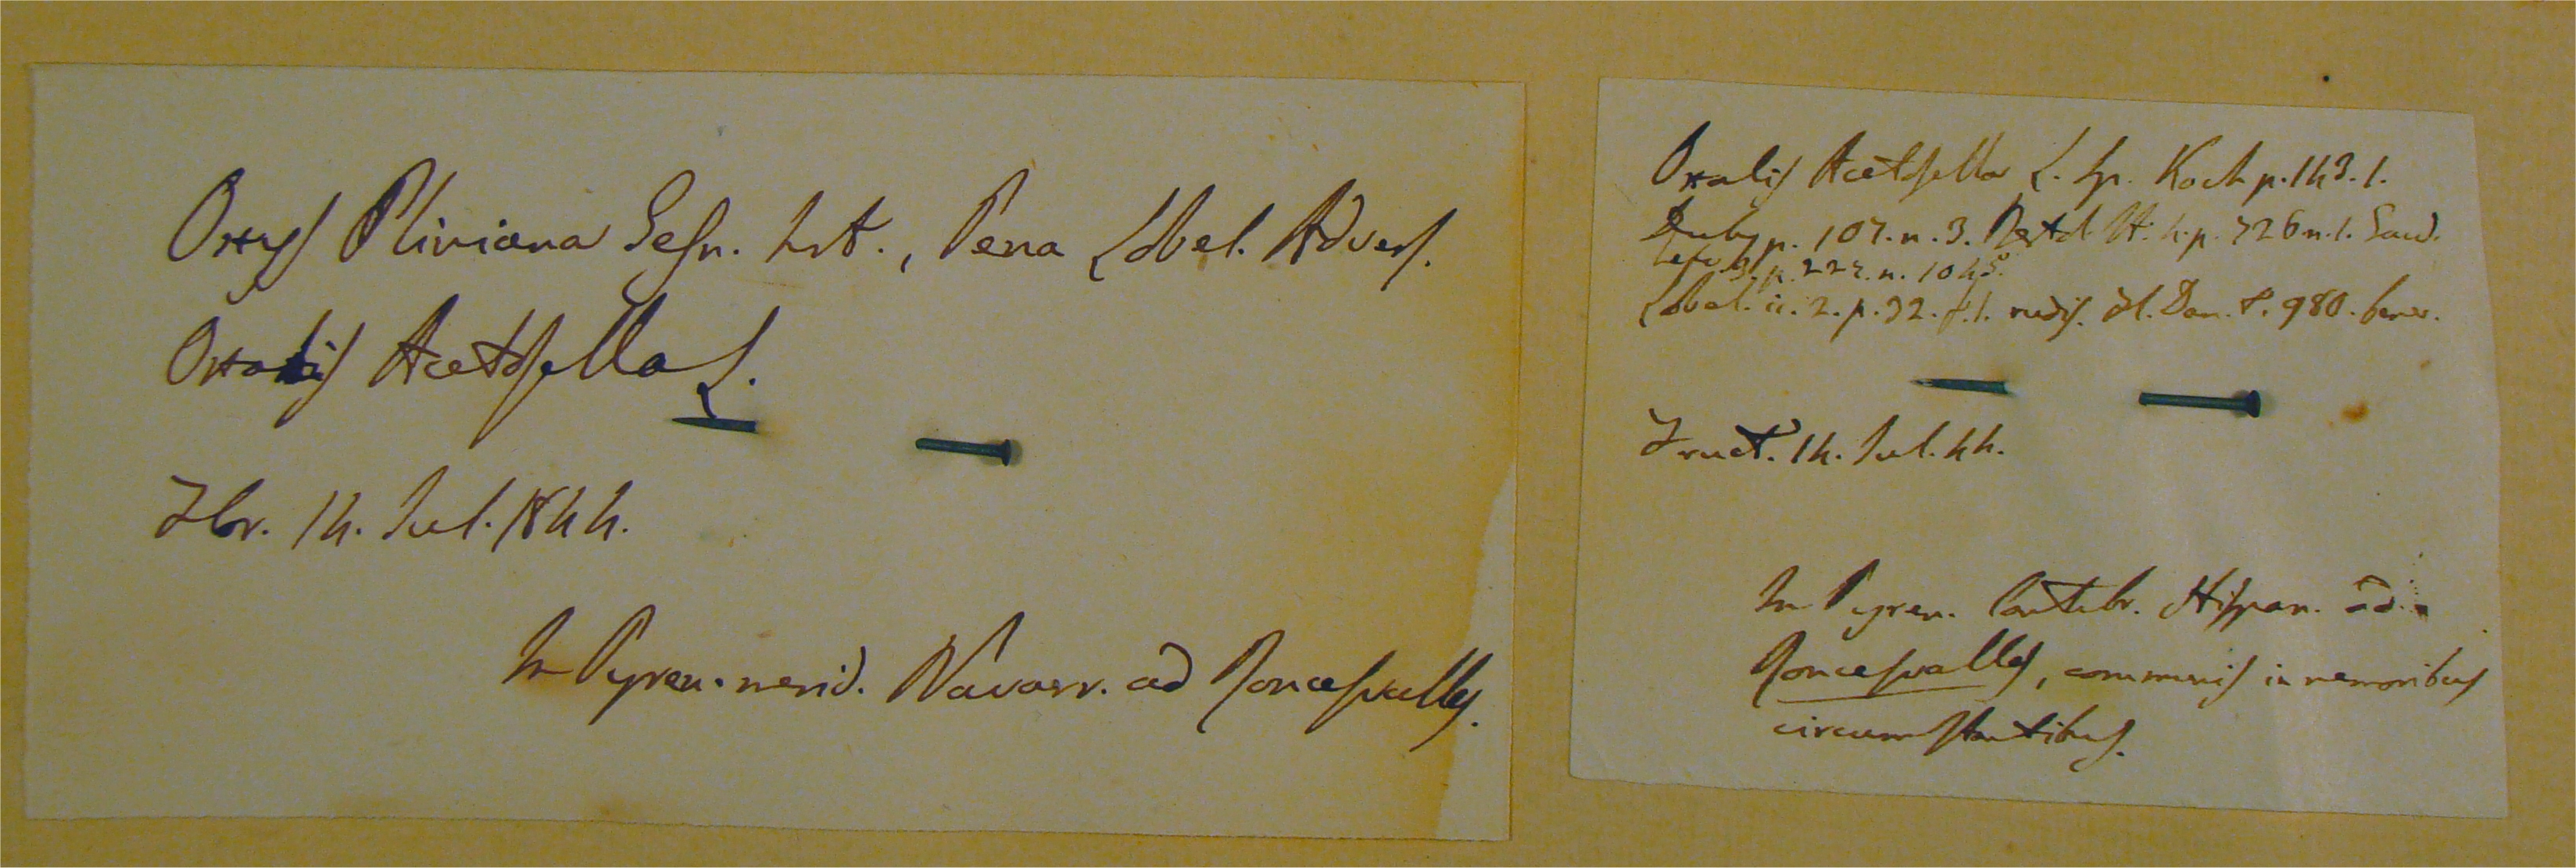 Oxys Pliniana Gesn. hrt., Pena Lobel. Advers.
Oxalis Acetosella L.
Flor. 14. Jul. 1844.
In Pyren. merid. Navarr. ad Roncesvalles.
Oxalis Acetosella L. sp. Koch p. 143. 1.
Duby p. 107. n. 3. It. 4. p. 726 n. 1. Gaud.
helv. 3. p. 227. n. 1045.
Lobel. ic. 2. p. 32. f. 1. rudis. Fl. Dan. t. 980. bene.
Fruct. 14. Jul. 44.
In Pyren. Cantabr. Hispan. ad
Roncesvalles, communis in nemoribus
circumstantibus.